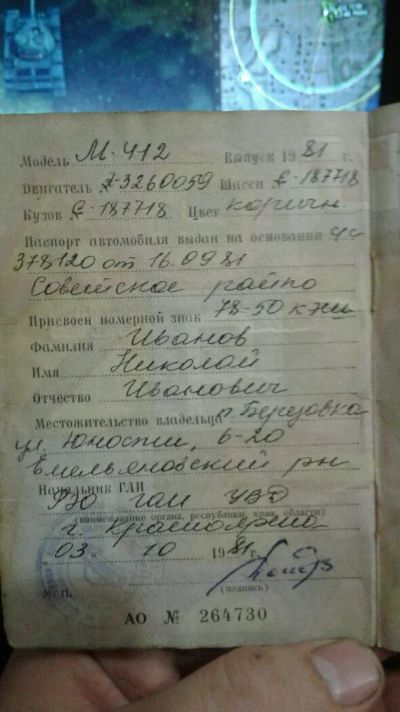 Модель М-412 Выпуск 1981 г.
Двигатель 2-3260059 Шасси С-187718
Кузов С-187718 Цвет коричн.
Паспорт автомобиля выдан на основании
378120 от 16.09.81
Советское райпо
Присвоен номерной знак 78-50 кэш
Фамилия Иванов
Имя Николай
Отчество Иванович
Местожительство владельца п. Березовка
ул. Юности, 6-20
Емельяновский рн
Начальник ГАИ
РЭО ГАИ УВД
(наименование органа, республики, края, области)
г. Красноярска
"03" 10 1981 г.
М. П. (подпись)
АО № 264730